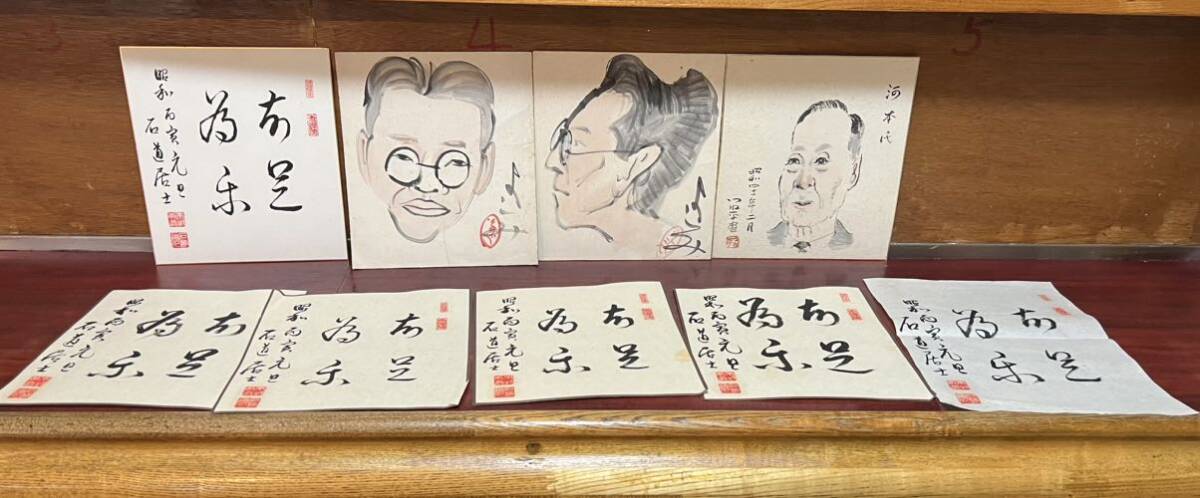 3
4
5
知足
為楽
昭和丙寅元旦
石道居士
河本氏
知足
為楽
昭和丙寅元旦
石道居士
知足
為楽
昭和丙寅元旦
石道居士
知足
為楽
昭和丙寅元旦
石道居士
知足
為楽
昭和丙寅元旦
石道居士
知足
為楽
昭和丙寅元旦
石道居士